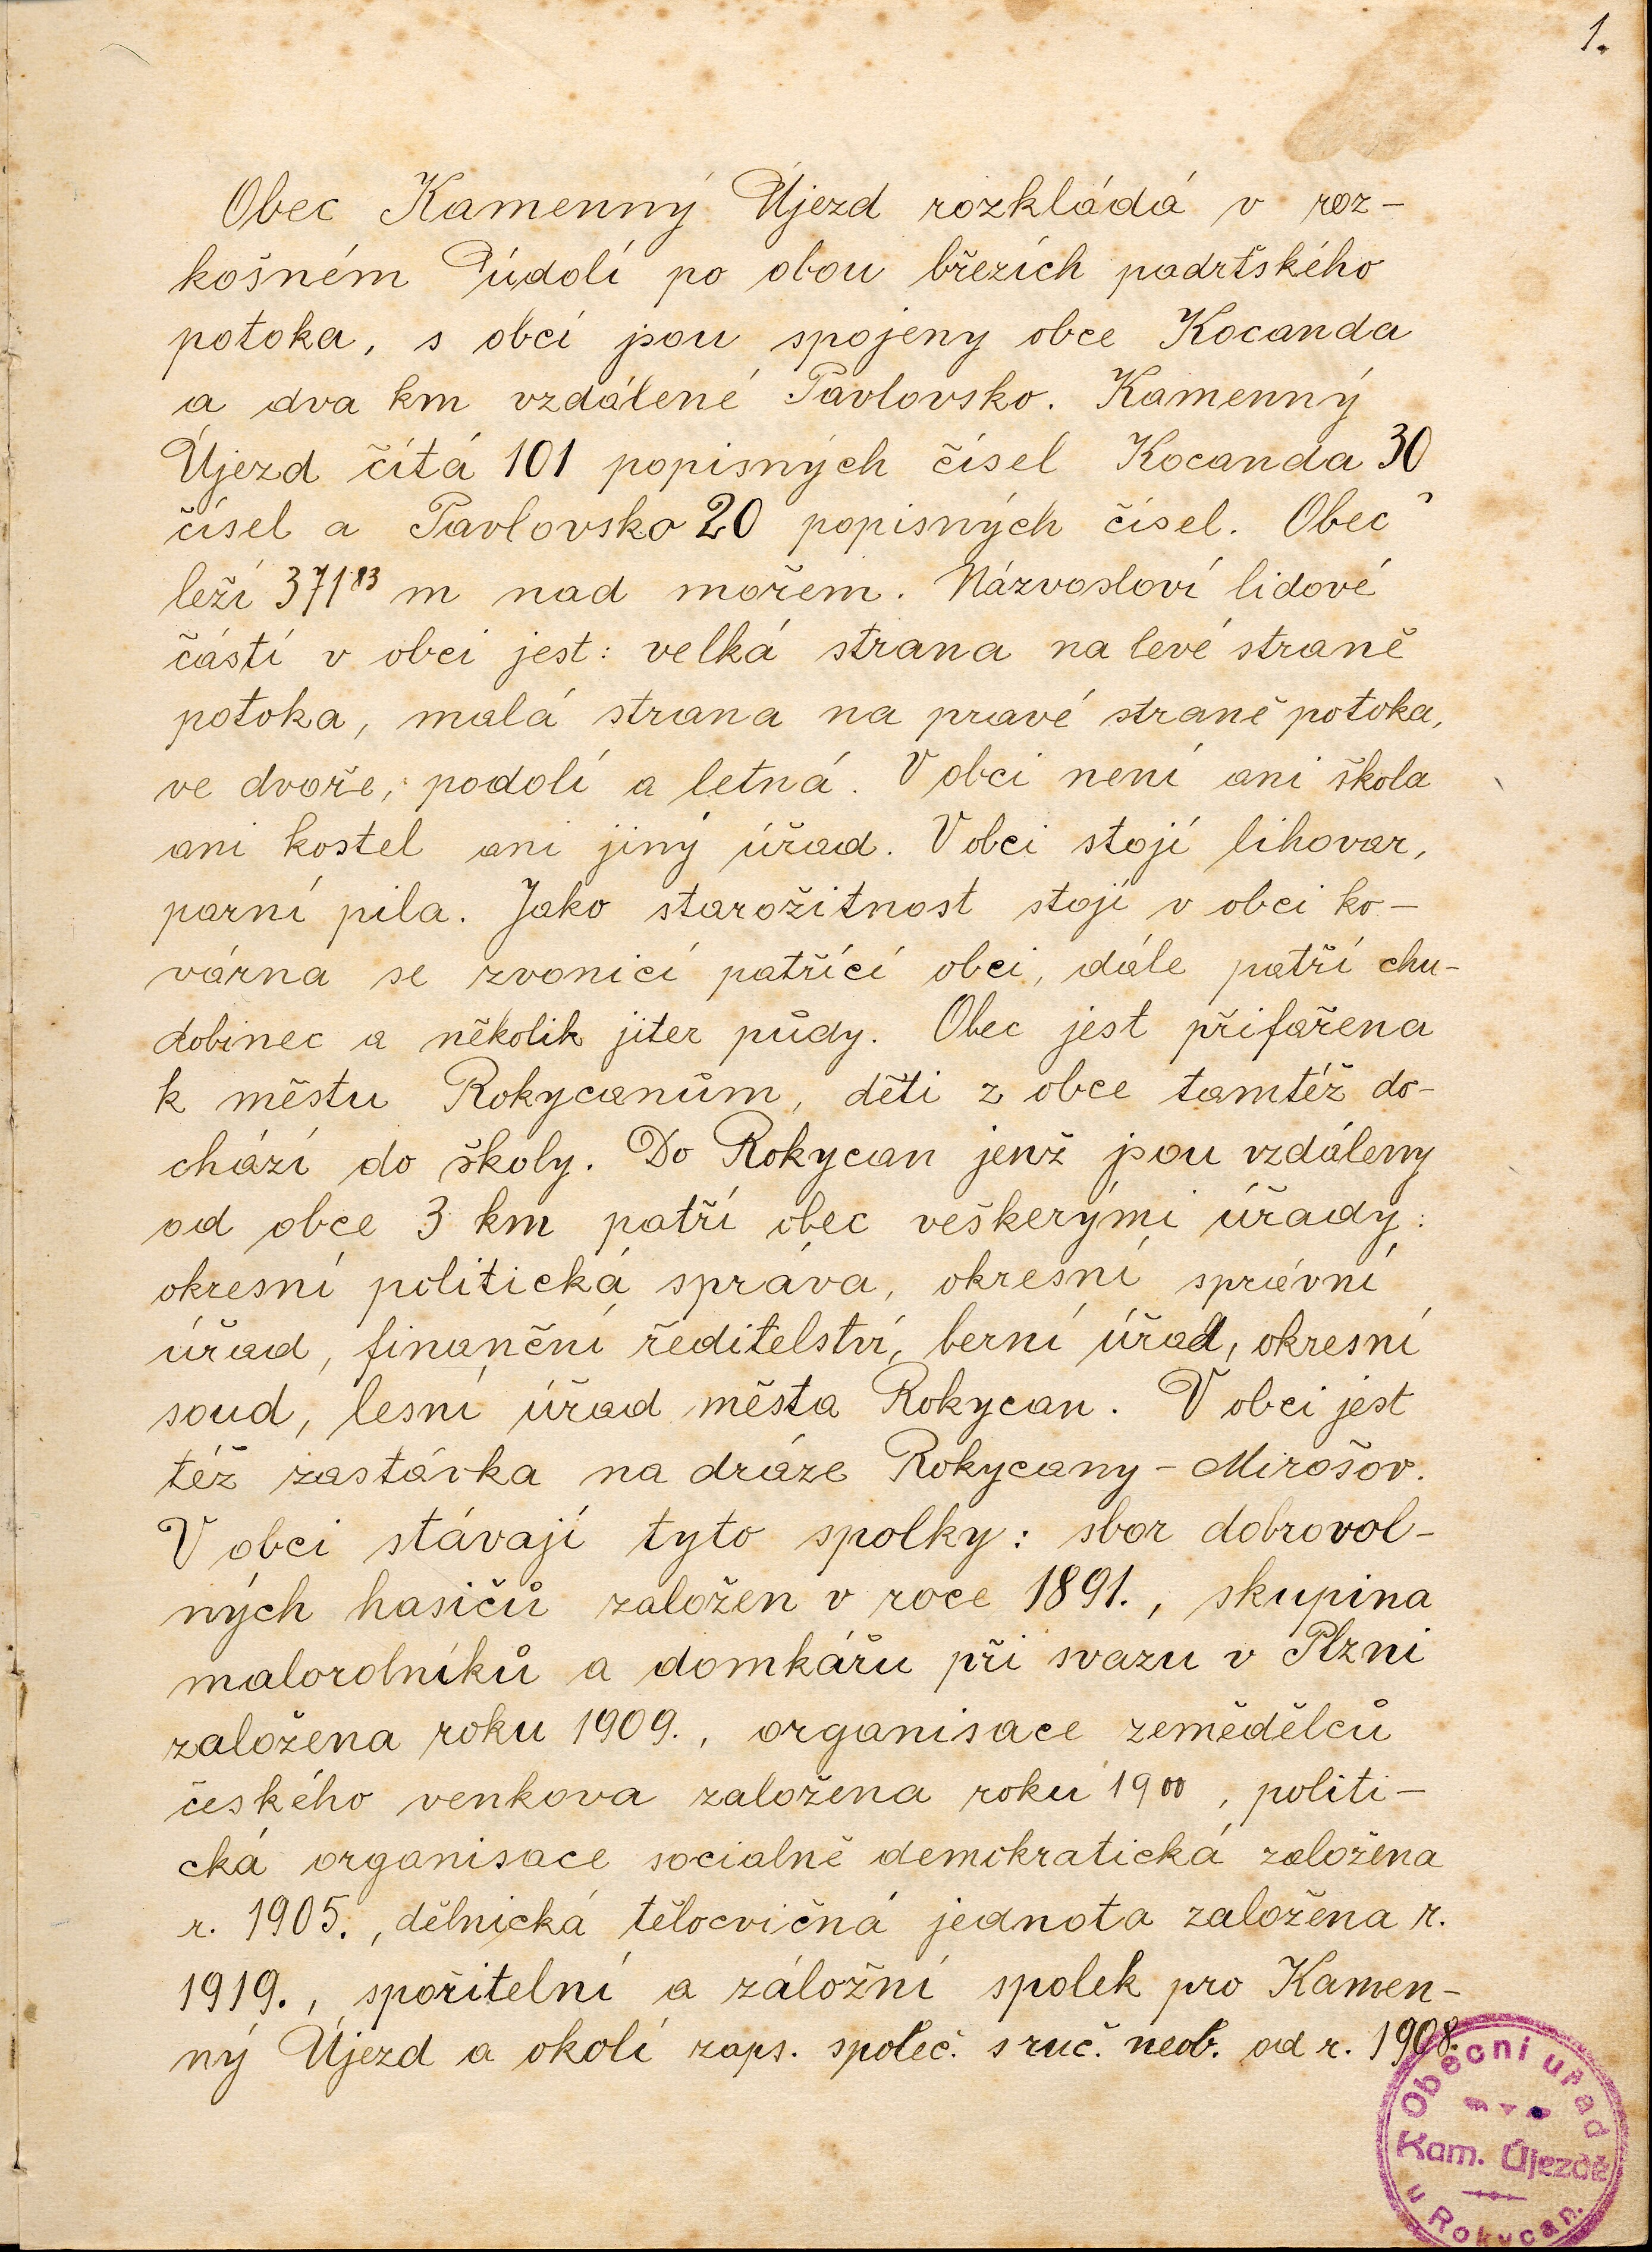 1.
Obec Kamenný Újezd rozkládá v roz-
košném údolí po obou březích padrťského
potoka, s obcí jsou spojeny obce Kocanda
a dva km vzdálené Pavlovsko. Kamenný
Újezd čítá 101 popisných čísel Kocanda 30
čísel a Pavlovsko 20 popisných čísel. Obec
leží 371⁸³ m nad mořem. Názvosloví lidové
částí v obci jest: velká strana na levé straně
potoka, malá strana na pravé straně potoka,
ve dvoře, podolí a letná. V obci není ani škola
ani kostel ani jiný úřad. V obci stojí lihovar,
parní pila. Jako starožitnost stojí v obci ko-
várna se zvonicí patřící obci, dále patří chu-
dobinec a několik jiter půdy. Obec jest přifařena
k městu Rokycanům, děti z obce tamtéž do-
chází do školy. Do Rokycan jenž jsou vzdáleny
od obce 3 km patří obec veškerými úřady:
okresní politická správa, okresní správní
úřad, finanční ředitelství, berní úřad, okresní
soud, lesní úřad města Rokycan. V obci jest
též zastávka na dráze Rokycany - Mirošov.
V obci stávají tyto spolky: sbor dobrovol-
ných hasičů založen v roce 1891., skupina
malorolníků a domkářů při svazu v Plzni
založena roku 1909., organisace zemědělců
českého venkova založena roku 1900, politi-
cká organisace socialně demokratická založena
r. 1905., dělnická tělocvičná jednota založena r.
1919., spořitelní a záložní spolek pro Kamen-
ný Újezd a okolí zaps. společ. s ruč. neob. od r. 1908.
Obecní úřad
v
Kam. Újezdě
u Rokycan.